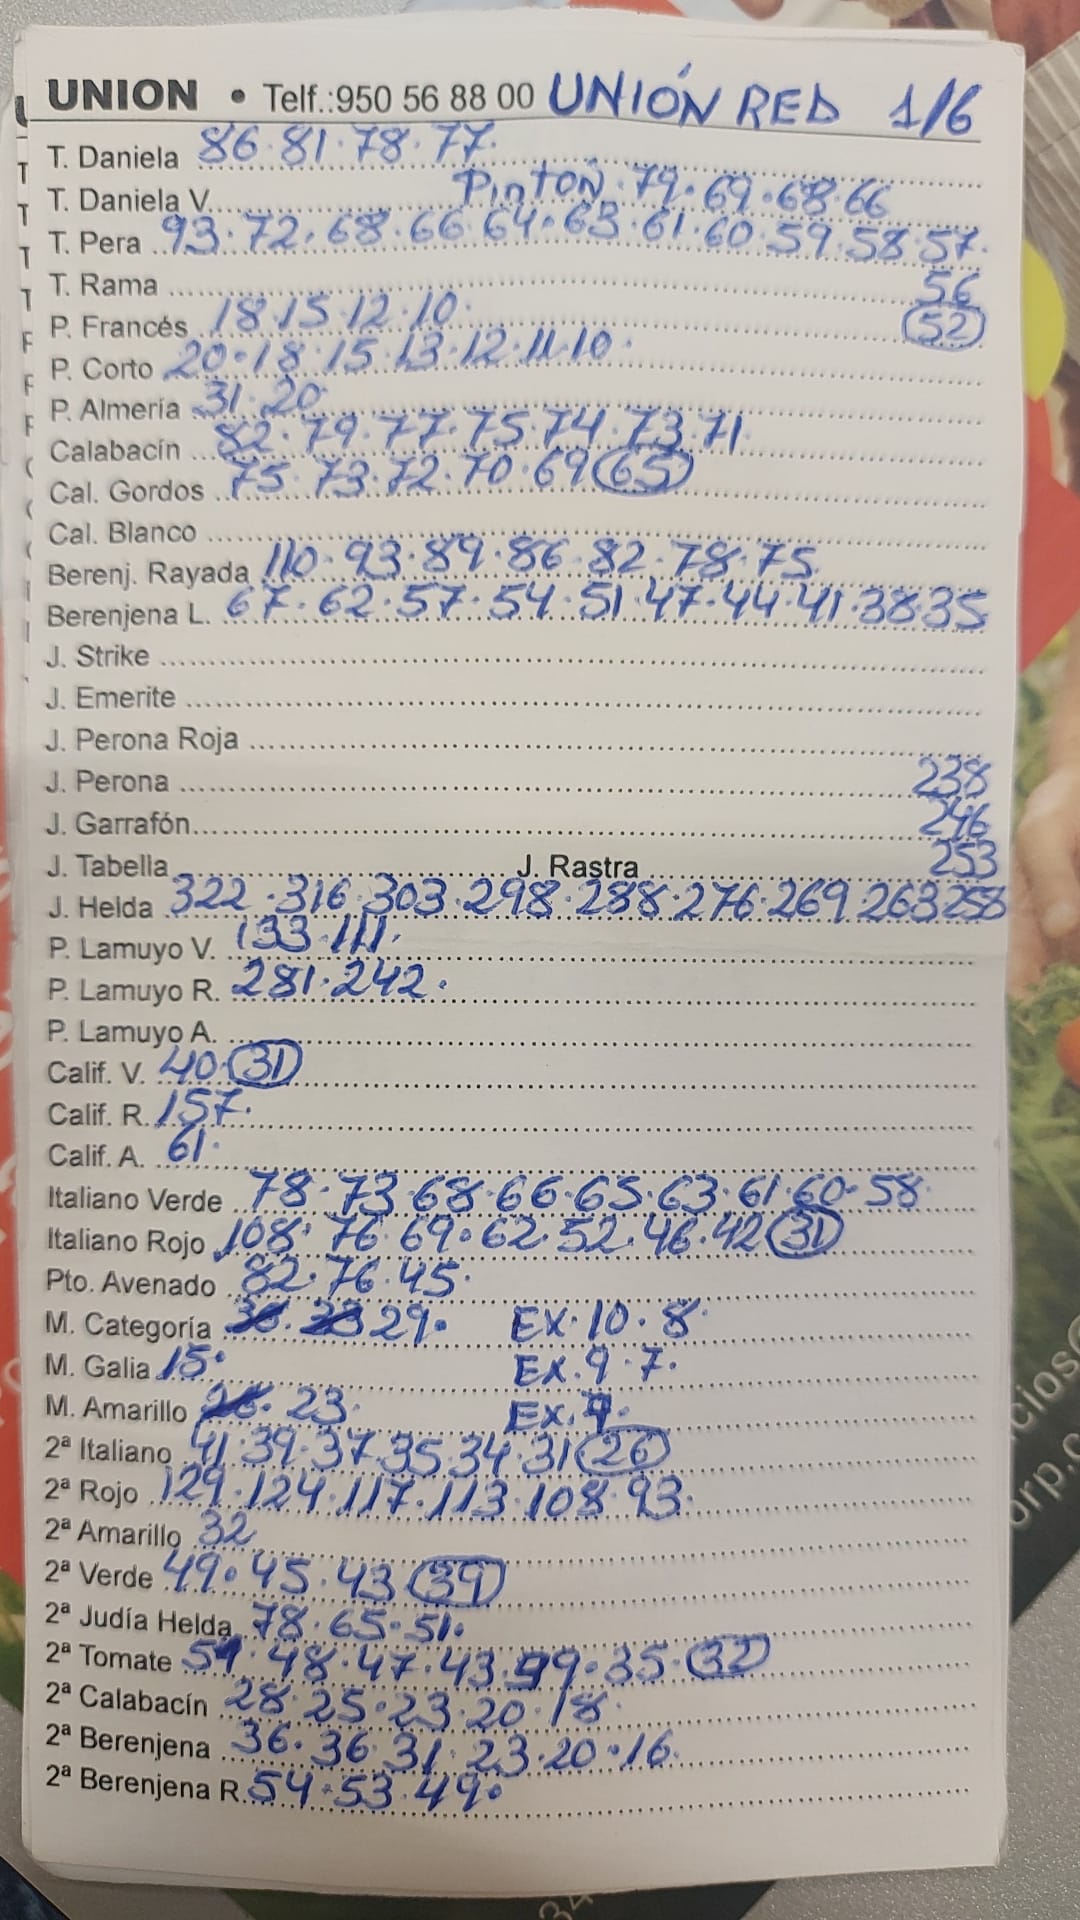 UNION • Telf.:950 56 88 00 UNIÓN RED 1/6
T. Daniela 86.81.78.77.
T. Daniela V. PINTON.79.69.68.66
T. Pera 93.72.68.66.64.63.61.60.59.58.57.
T. Rama 56
P. Francés 18.15.12.10. 52
P. Corto 20.18.15.13.12.11.10.
P. Almería 31.20
Calabacín 82.79.77.75.74.73.71.
Cal. Gordos 75.73.72.70.69 65
Cal. Blanco
Berenj. Rayada 110.93.89.86.82.78.75
Berenjena L. 67.62.57.54.51.47.44.41.38.35
J. Strike
J. Emerite
J. Perona Roja
J. Perona 238
J. Garrafón 246
J. Tabella J. Rastra 253
J. Helda 322.316.303.298.288.276.269.263.258
P. Lamuyo V. 133.111.
P. Lamuyo R. 281.242.
P. Lamuyo A.
Calif. V. 40.31
Calif. R. 157.
Calif. A. 61.
Italiano Verde 78.73.68.66.65.63.61.60.58.
Italiano Rojo 108.76.69.62.52.46.42 31
Pto. Avenado 82.76.45.
M. Categoría 29. EX.10.8.
M. Galia 15. EX.9.7.
M. Amarillo 23. EX.
2ª Italiano 41.39.37.35.34.31 26
2ª Rojo 129.124.117.113.108.93.
2ª Amarillo 32
2ª Verde 49.45.43 39
2ª Judía Helda 78.65.51.
2ª Tomate 48.47.43. 35.32
2ª Calabacín 28.25.23.20.18.
2ª Berenjena 36.36.31.23.20.16.
2ª Berenjena R. 54.53.49.